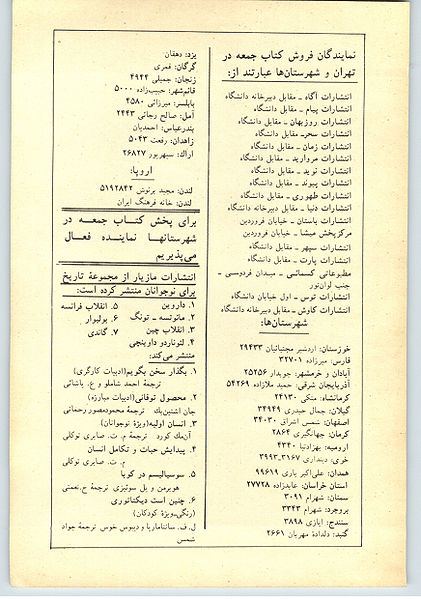 نمایندگان فروش کتاب جمعه در
تهران و شهرستان‌ها عبارتند از:
انتشارات آگاه ـ مقابل دبیرخانه دانشگاه
انتشارات پیام ـ مقابل دانشگاه
انتشارات روزبهان ـ مقابل دانشگاه
انتشارات سحرـ مقابل دانشگاه
انتشارات زمان ـ مقابل دانشگاه
انتشارات مروارید ـ مقابل دانشگاه
انتشارات نوید ـ مقابل دانشگاه
انتشارات پیوند ـ مقابل دانشگاه
انتشارات طهوری ـ مقابل دانشگاه
انتشارات دنیا ـ مقابل دبیرخانه دانشگاه
انتشارات باستان ـ خیابان فروردین
مرکز پخش میشا ـ خیابان فروردین
انتشارات سپهر ـ مقابل دانشگاه
انتشارات پارت ـ مقابل دانشگاه
مطبوعاتی کسمائی ـ میدان فردوسی ـ
جنب لوان‌تور
انتشارات توس ـ اول خیابان دانشگاه
انتشارات کاوش ـ مقابل دبیرخانه دانشگاه
شهرستان‌ها:
خوزستان: اردشیر مجتبائیان ۲۹۴۳۳
فارس: میرزاده ۳۲۷۰۱
آبادان و خرمشهر: جویدار ۲۵۲۵۶
آذربایجان شرقی: حمید ملازاده ۵۴۲۶۹
کرمانشاه: متکی ۲۴۱۳۰
گیلان: جمال حیدری ۳۴۹۴۹
اصفهان: شمس اشراق ۳۴۰۳۰
کرمان: جهانگیری ۲۸۶۴
ارومیه: بهزادنیا ۴۳۴۰
خوی: دینداری ۳۱۶۷ـ۳۹۹۳
همدان: علی‌اکبر یاری ۹۹۶۱۹
استان خراسان: عابدزاده ۲۷۷۲۸
سمنان: شهرام ۳۰۹۱
بروجرد: شهرام ۳۳۴۳
سنندج: ایازی ۳۸۹۸
گنبد: دلداده مهربان ۲۶۶۱
یزد: دهقان
گرگان: قمری
زنجان: جمیلی ۴۹۴۴
قائم‌شهر: حبیب‌زاده ۵۰۰۰
بابلسر: میرزائی ۴۵۸۰
آمل: صالح رجائی ۲۴۴۳
بندرعباس: احمدیان
زاهدان: رفعت ۵۰۴۳
اراک: سپهرپور ۲۶۸۲۷
اروپا:
لندن: مجید برنوش ۵۱۹۲۸۴۲
لندن: خانه فرهنگ ایران
برای پخش کتاب جمعه در
شهرستانها نماینده فعال
می‌پذیریم
انتشارات مازیار از مجموعهٔ تاریخ
برای نوجوانان منتشر کرده است:
۱. داروین
۲. مائوتسه ـ تونگ
۳. انقلاب چین
۴. لئوناردو داوینچی
۵. انقلاب فرانسه
۶. بولیوار
۷. گاندی
منتشر می‌کند:
۱. بگذار سخن بگویم (ادبیات کارگری)
ترجمهٔ احمد شاملو و ع. پاشائی
۲. محصول توفانی (ادبیات مبارزه)
جان اشتین‌بک ترجمهٔ محمودمصور رحمانی
۳. انسان اولیه (ویژهٔ نوجوانان)
آن‌مک گورد ترجمهٔ م. ت. صابری توکلی
۴. پیدایش حیات و تکامل انسان
م. ت. صابری توکلی
۵. سوسیالیسم در کوبا
هوبرمن و پل سوئیزی ترجمهٔ ح.نعمتی
۶. چنین است دیکتاتوری
(رنگی‌ـ‌ویژهٔ کودکان)
ل. ف. سانتاماریا و دیبوس خوس ترجمهٔ جواد
شمس